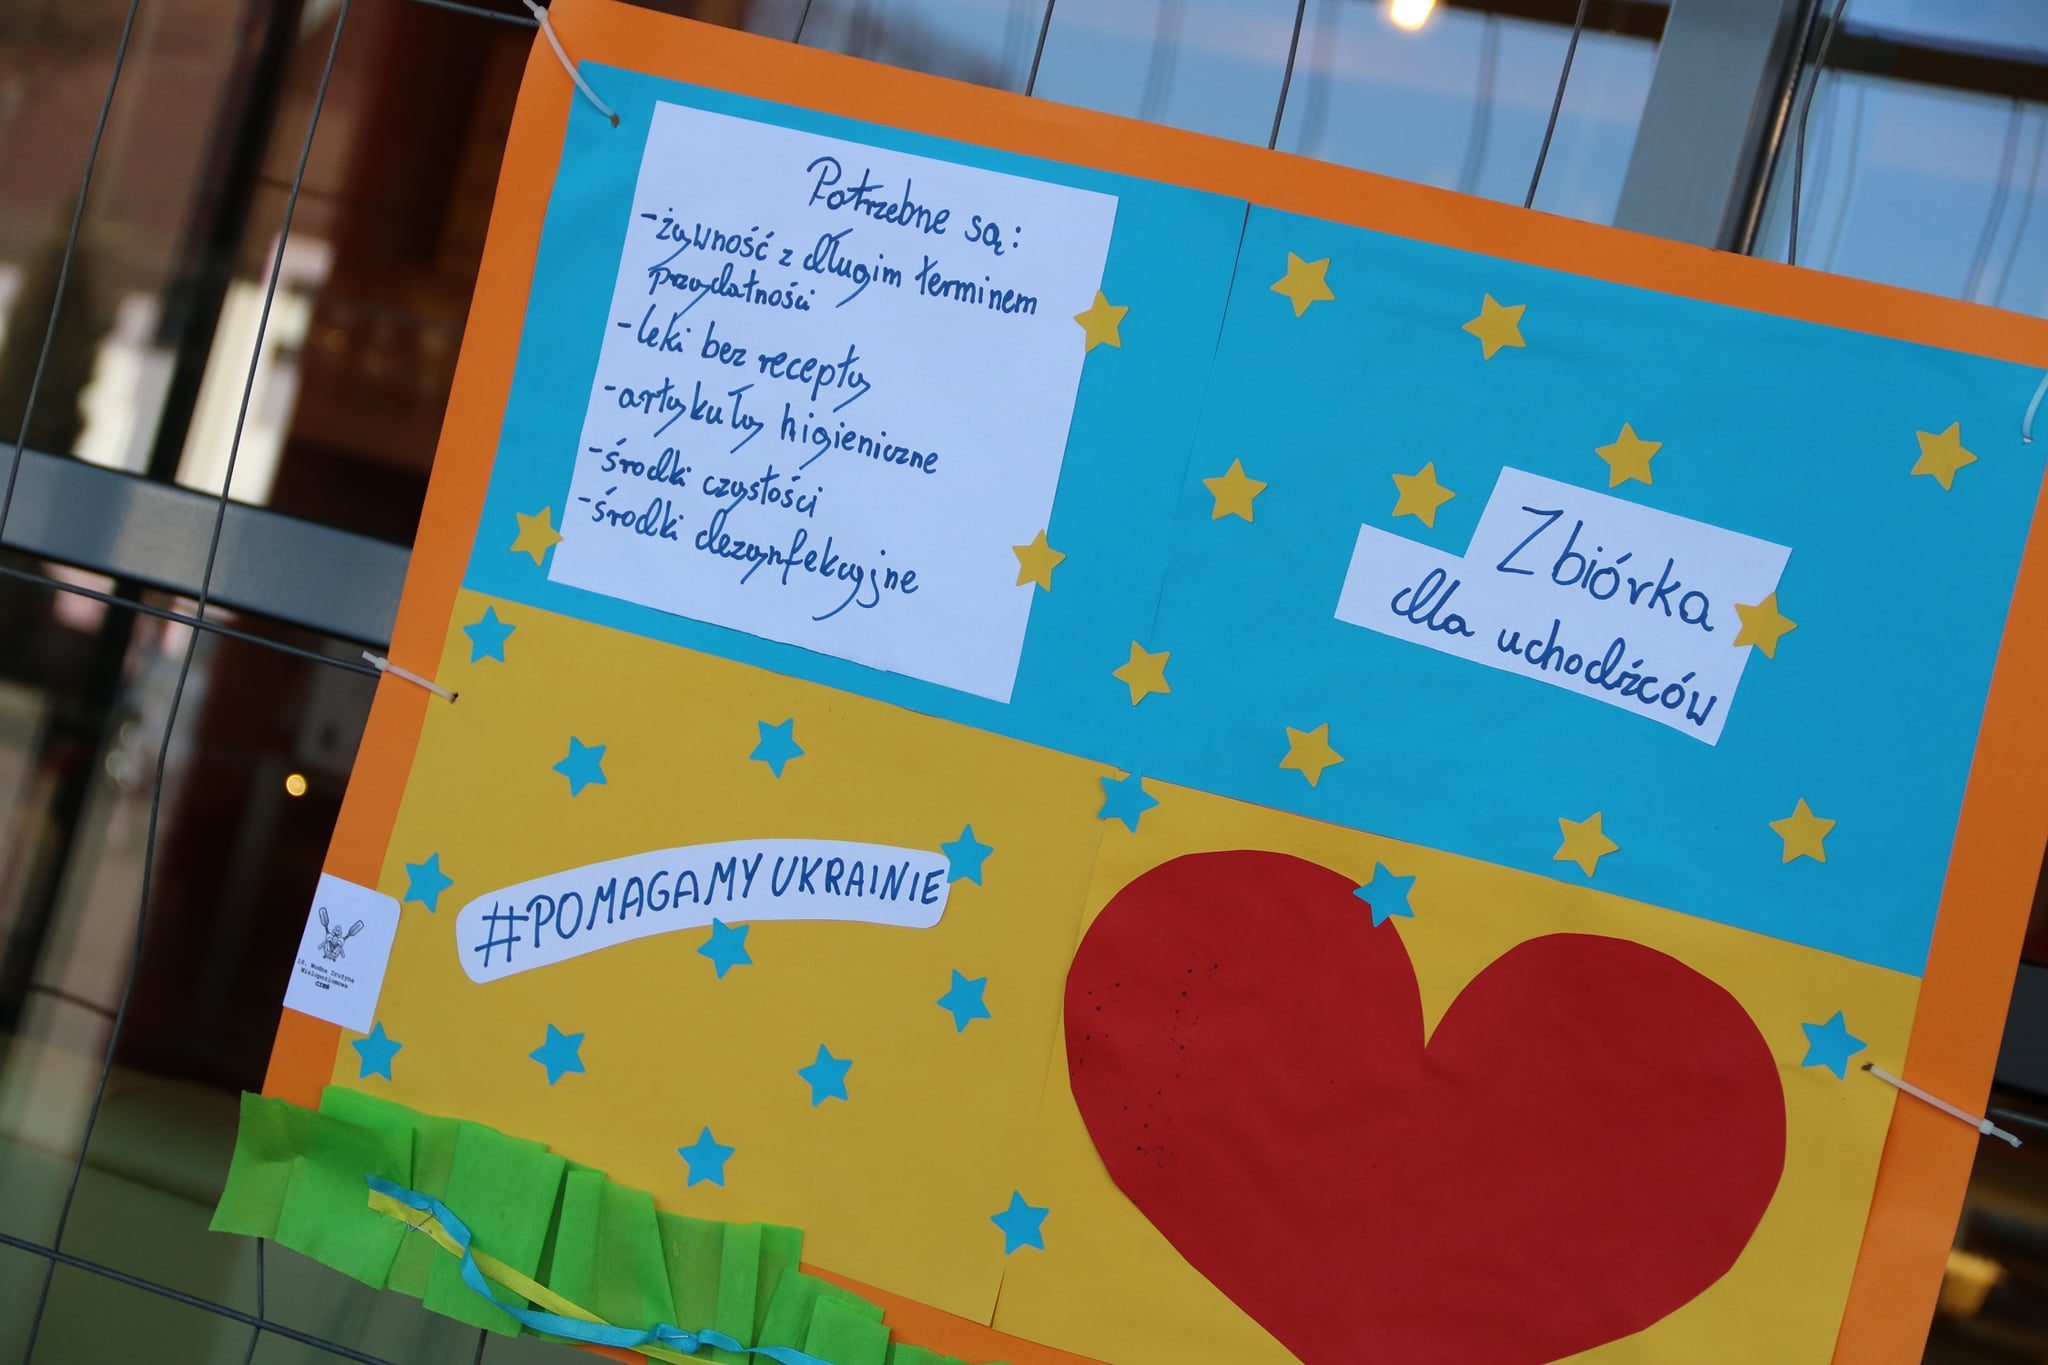 Potrzebne są:
-żywność z długim terminem
przydatności
-leki bez recepty
-artykuły higieniczne
-środki czystości
-środki dezynfekcyjne
Zbiórka
dla uchodźców
#POMAGAMY UKRAINIE
18. Wodna Drużyna
Wielopoziomowa